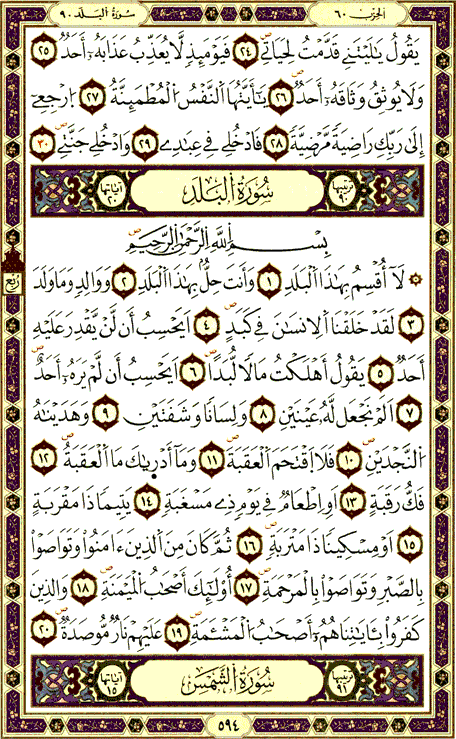 الحزب ٦٠
سُورَةُ الْبَلَدِ ٩٠
يَقُولُ يَٰلَيْتَنِے قَدَّمْتُ لِحَيَاتِے ٢٤ فَيَوْمَئِذٖ لَّا يُعَذِّبُ عَذَابَهُۥٓ أَحَدٞ ٢٥
وَلَا يُوثِقُ وَثَاقَهُۥٓ أَحَدٞ ٢٦ يَٰٓأَيَّتُهَا اَ۬لنَّفْسُ اُ۬لْمُطْمَئِنَّةُ ٢٧ اُ۪رْجِعِےٓ
إِلَىٰ رَبِّكِ رَاضِيَةٗ مَّرْضِيَّةٗ ٢٨ فَادْخُلِے فِے عِبَٰدِے ٢٩ وَادْخُلِے جَنَّتِےۖ ٣٠
ترتيبها ٩٠
سُورَةُ الْبَلَدِ
آياتها ٢٠
بِسْمِ اللَّهِ الرَّحْمَٰنِ الرَّحِيمِ
۞ لَآ أُقْسِمُ بِهَٰذَا اَ۬لْبَلَدِ ١ وَأَنتَ حِلُّۢ بِهَٰذَا اَ۬لْبَلَدِ ٢ وَوَالِدٖ وَمَا وَلَدَ
٣ لَقَدْ خَلَقْنَا اَ۬لِانسَٰنَ فِے كَبَدٍۖ ٤ اَيَحْسِبُ أَن لَّنْ يَّقْدِرَ عَلَيْهِ
أَحَدٞۖ ٥ يَقُولُ أَهْلَكْتُ مَالاٗ لُّبَداًۖ ٦ اَيَحْسِبُ أَن لَّمْ يَرَهُۥٓ أَحَدٌۖ
٧ اَلَمْ نَجْعَل لَّهُۥ عَيْنَيْنِ ٨ وَلِسَاناٗ وَشَفَتَيْنِ ٩ وَهَدَيْنَٰهُ
اُ۬لنَّجْدَيْنِۖ ١٠ فَلَا اَ۪قْتَحَمَ اَ۬لْعَقَبَةَۖ ١١ وَمَآ أَدْر۪يٰكَ مَا اَ۬لْعَقَبَةُ ١٢
فَكُّ رَقَبَةٍ ١٣ اَوِ اِطْعَٰمٞ فِے يَوْمٖ ذِے مَسْغَبَةٖ ١٤ يَتِيماٗ ذَا مَقْرَبَةٍ
١٥ اَوْ مِسْكِيناٗ ذَا مَتْرَبَةٖۖ ١٦ ثُمَّ كَانَ مِنَ اَ۬لذِينَ ءَامَنُواْ وَتَوَاصَوْاْ
بِالصَّبْرِ وَتَوَاصَوْاْ بِالْمَرْحَمَةِۖ ١٧ أُوْلَٰٓئِكَ أَصْحَٰبُ اُ۬لْمَيْمَنَةِۖ ١٨ وَالذِينَ
كَفَرُواْ بِـَٔايَٰتِنَا هُمُۥٓ أَصْحَٰبُ اُ۬لْمَشْـَٔمَةِ ١٩ عَلَيْهِمْ نَارٞ مُّوصَدَةُۢۖ ٢٠
ترتيبها ٩١
سُورَةُ الشَّمْسِ
آياتها ١٥
٥٩٤
ربع